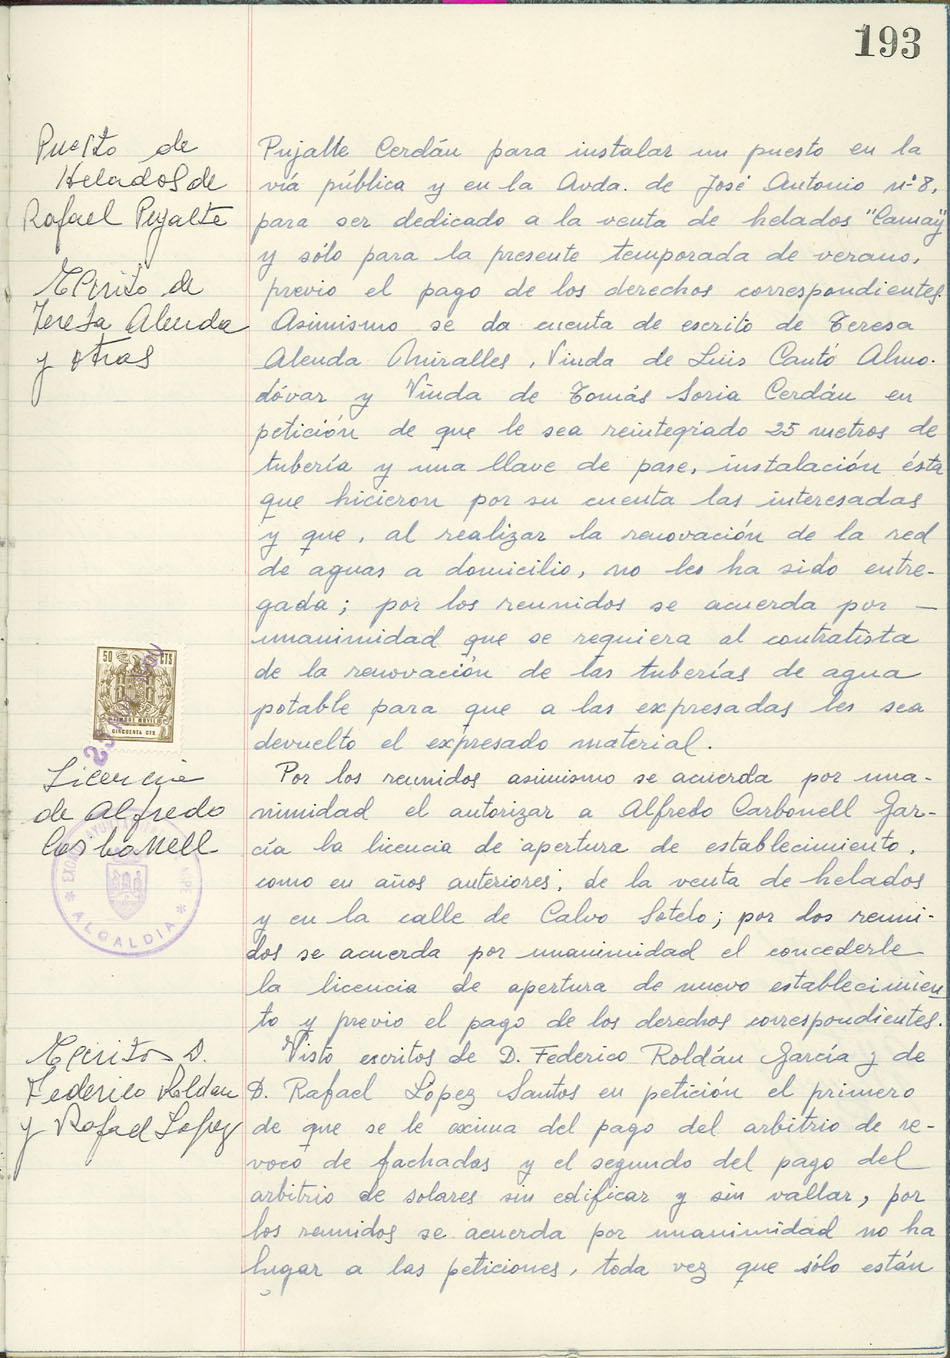 193
Puesto de
Helados de
Rafael Pujalte
Pujalte Cerdán para instalar un puesto en la
vía pública y en la Avda. de José Antonio nº 8,
para ser dedicado a la venta de helados "Camay"
y sólo para la presente temporada de verano,
previo el pago de los derechos correspondientes.
Escrito de
Teresa Alenda
y otras
Asimismo se da cuenta de escrito de Teresa
Alenda Miralles, Viuda de Luis Cantó Almo-
dóvar y Viuda de Tomás Soria Cerdán en
petición de que le sea reintegrado 25 metros de
tubería y una llave de pase, instalación ésta
que hicieron por su cuenta las interesadas
y que, al realizar la renovación de la red
de aguas a domicilio, no les ha sido entre-
gada; por los reunidos se acuerda por —
unanimidad que se requiera al contratista
de la renovación de las tuberías de agua
potable para que a las expresadas les sea
devuelto el expresado material.
50 CTS
TIMBRE MOVIL
CINCUENTA CTS
Licencia
de Alfredo
Carbonell
ALCALDIA
Por los reunidos asimismo se acuerda por una-
nimidad el autorizar a Alfredo Carbonell Gar-
cía la licencia de apertura de establecimiento,
como en años anteriores, de la venta de helados
y en la calle de Calvo Sotelo; por los reuni-
dos se acuerda por unanimidad el concederle
la licencia de apertura de nuevo establecimien
to y previo el pago de los derechos correspondientes.
Escritos D.
Federico Roldan
y Rafael Lopez
Visto escritos de D. Federico Roldán García y de
D. Rafael López Santos en petición el primero
de que se le exima del pago del arbitrio de re-
voco de fachadas y el segundo del pago del
arbitrio de solares sin edificar y sin vallar, por
los reunidos se acuerda por unanimidad no ha
lugar a las peticiones, toda vez que sólo están